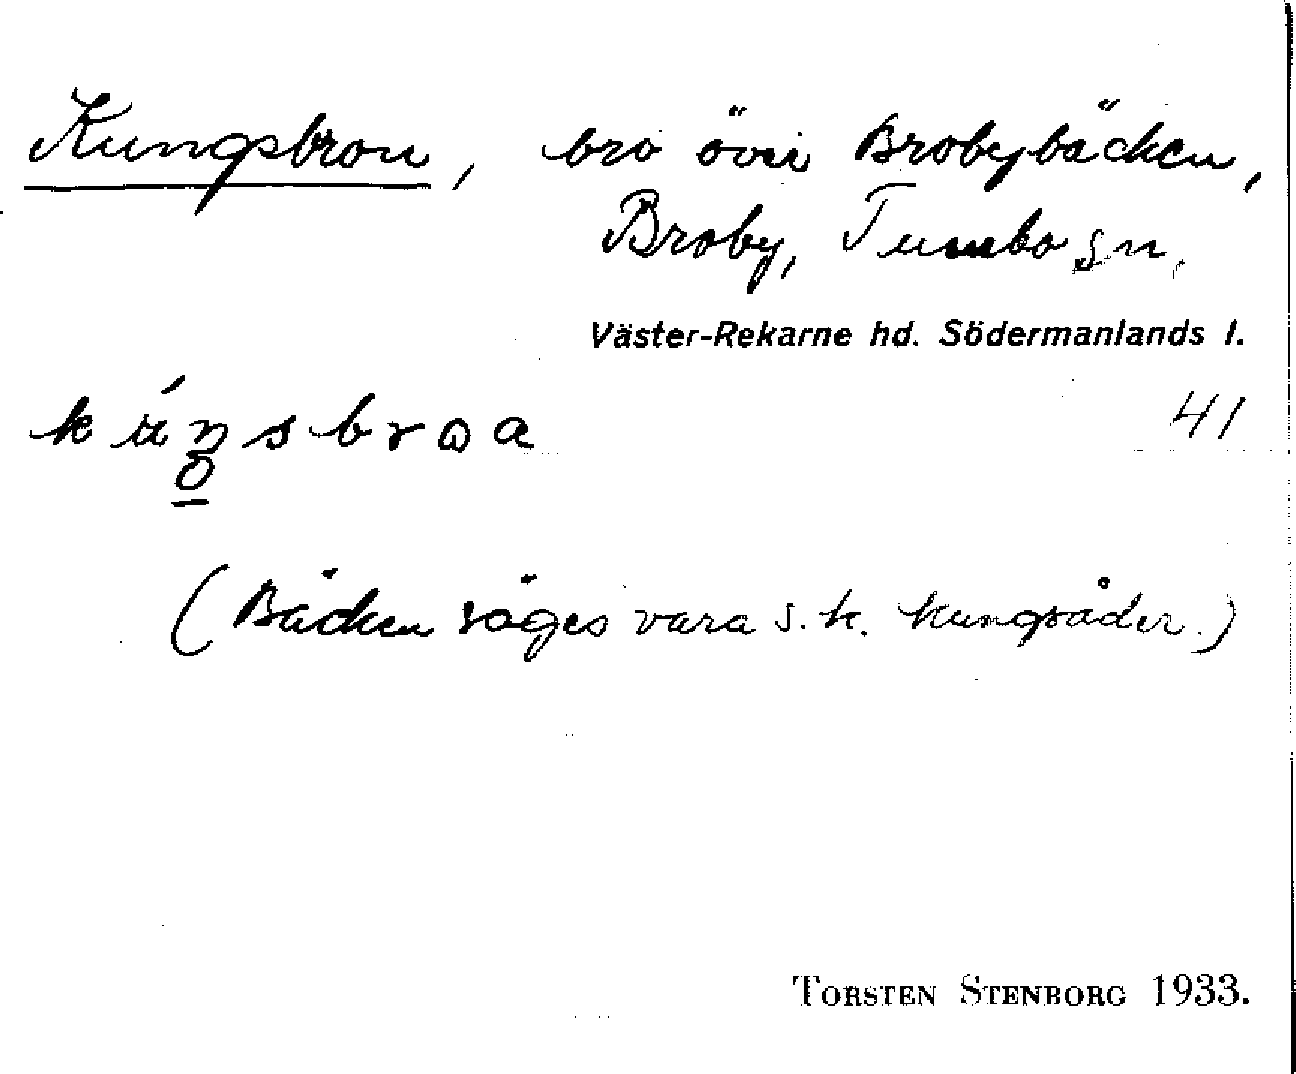 Kungsbron, bro över Brobybäcken,
Broby, Tumbo sn,
Väster-Rekarne hd. Södermanlands l.
41
(Bäcken säges vara s. k. kungsåder.)
TORSTEN STENBORG 1933.